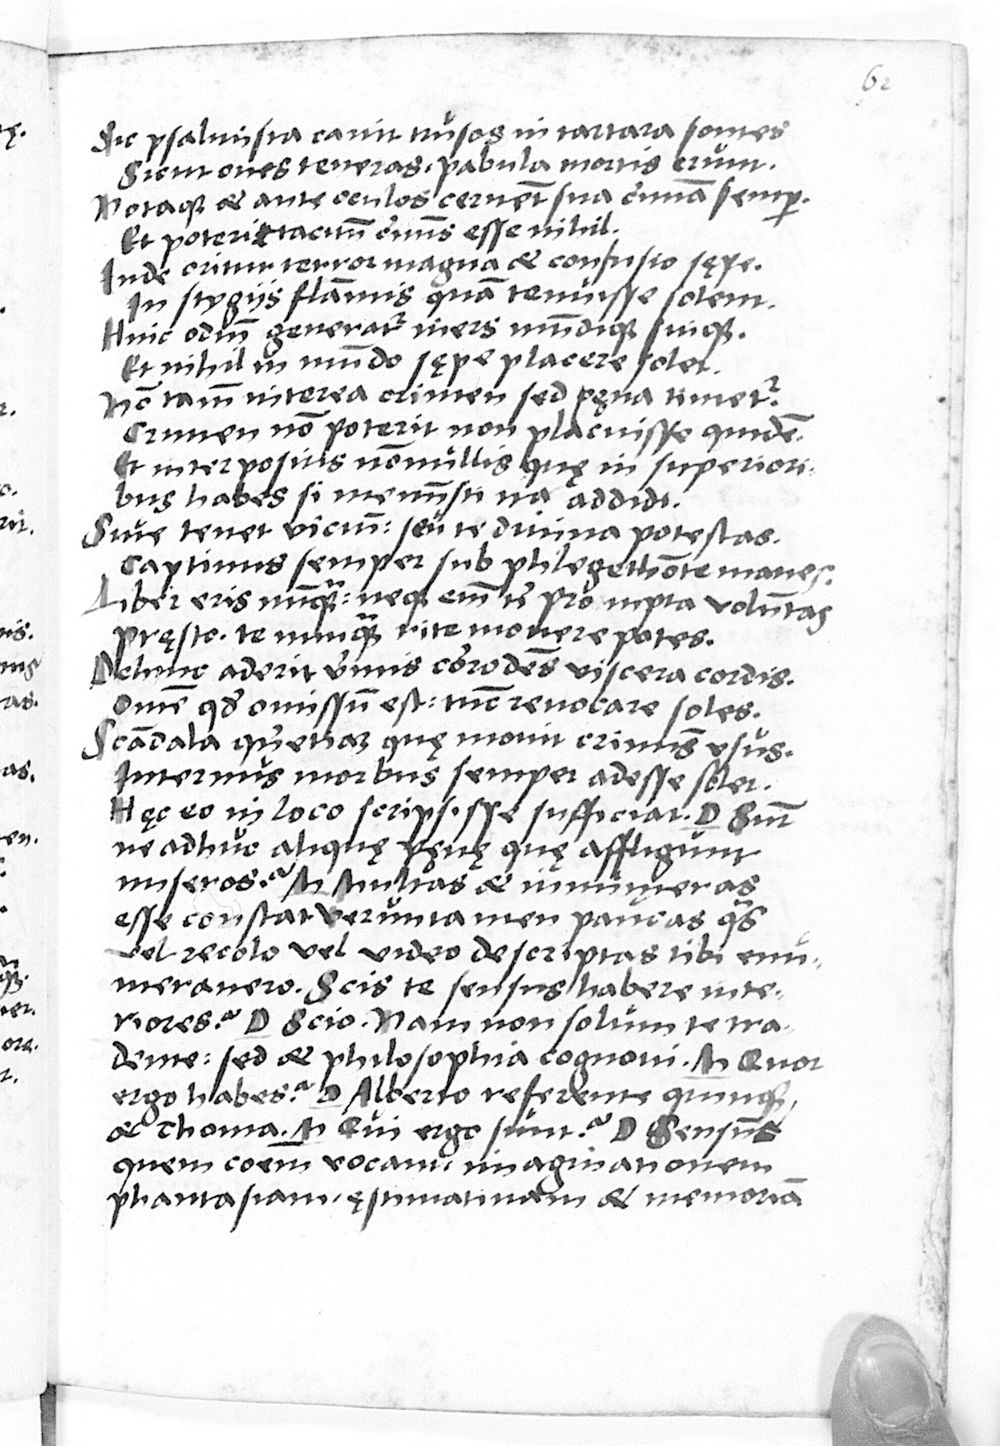 62
Sic psalmista canit trusos in tartara sontes
Sicut oues teneras, pabula mortis erunt.
Notaq; & ante oculos cernẽt sua crimĩa semp.
Et poterit tacitũ crimĩs esse nihil.
Inde oritur terror magna & confusio sępe.
In stygijs flãmis quã tenuisse solent.
Huic odiũ generatᷣ iners mũdiq; suiq;.
Et nihil in mũdo sępe placere solet.
Nõ tamẽ interea crimen sed pęna timetᷣ.
Crimen nõ poterit non placuisse quidẽ.
Et interpositis nõnullis quę in superiori-
bus habes si meministi ita addidi.
Siue tenet viciũ: seu te diuina potestas.
Captiuus semper sub phlegethõte manes.
Liber eris nũq̃: neq; eñ te prompta volũtas
Pręsto. te nunq̃ rite mouere potes.
Dehinc aderit vermis corrodẽs viscera cordis.
Omẽ qd̃ omissũ est: tũc reuocare soles.
Scãdala quetiam quę mouit criminis vsus.
Internus morbus semper adesse solet.
Hęc eo in loco scripsisse sufficiat. D Sunt
ne adhuc alique penę quę affligunt
miseros? M Multas & innumeras
esse constat verumtamen paucas q̃s
vel recolo vel video descriptas tibi enu-
merauero. Scis te sensus habere inte-
riores? D Scio. Nam non solum te tra-
dente: sed & philosophia cognoui. M Quot
ergo habes? D Alberto referente quinq;,
& Thoma. M Qui ergo sunt? D Sensus
quem coem̃ vocant, imaginationem
phantasiam, ęstimatiuam & memoriã